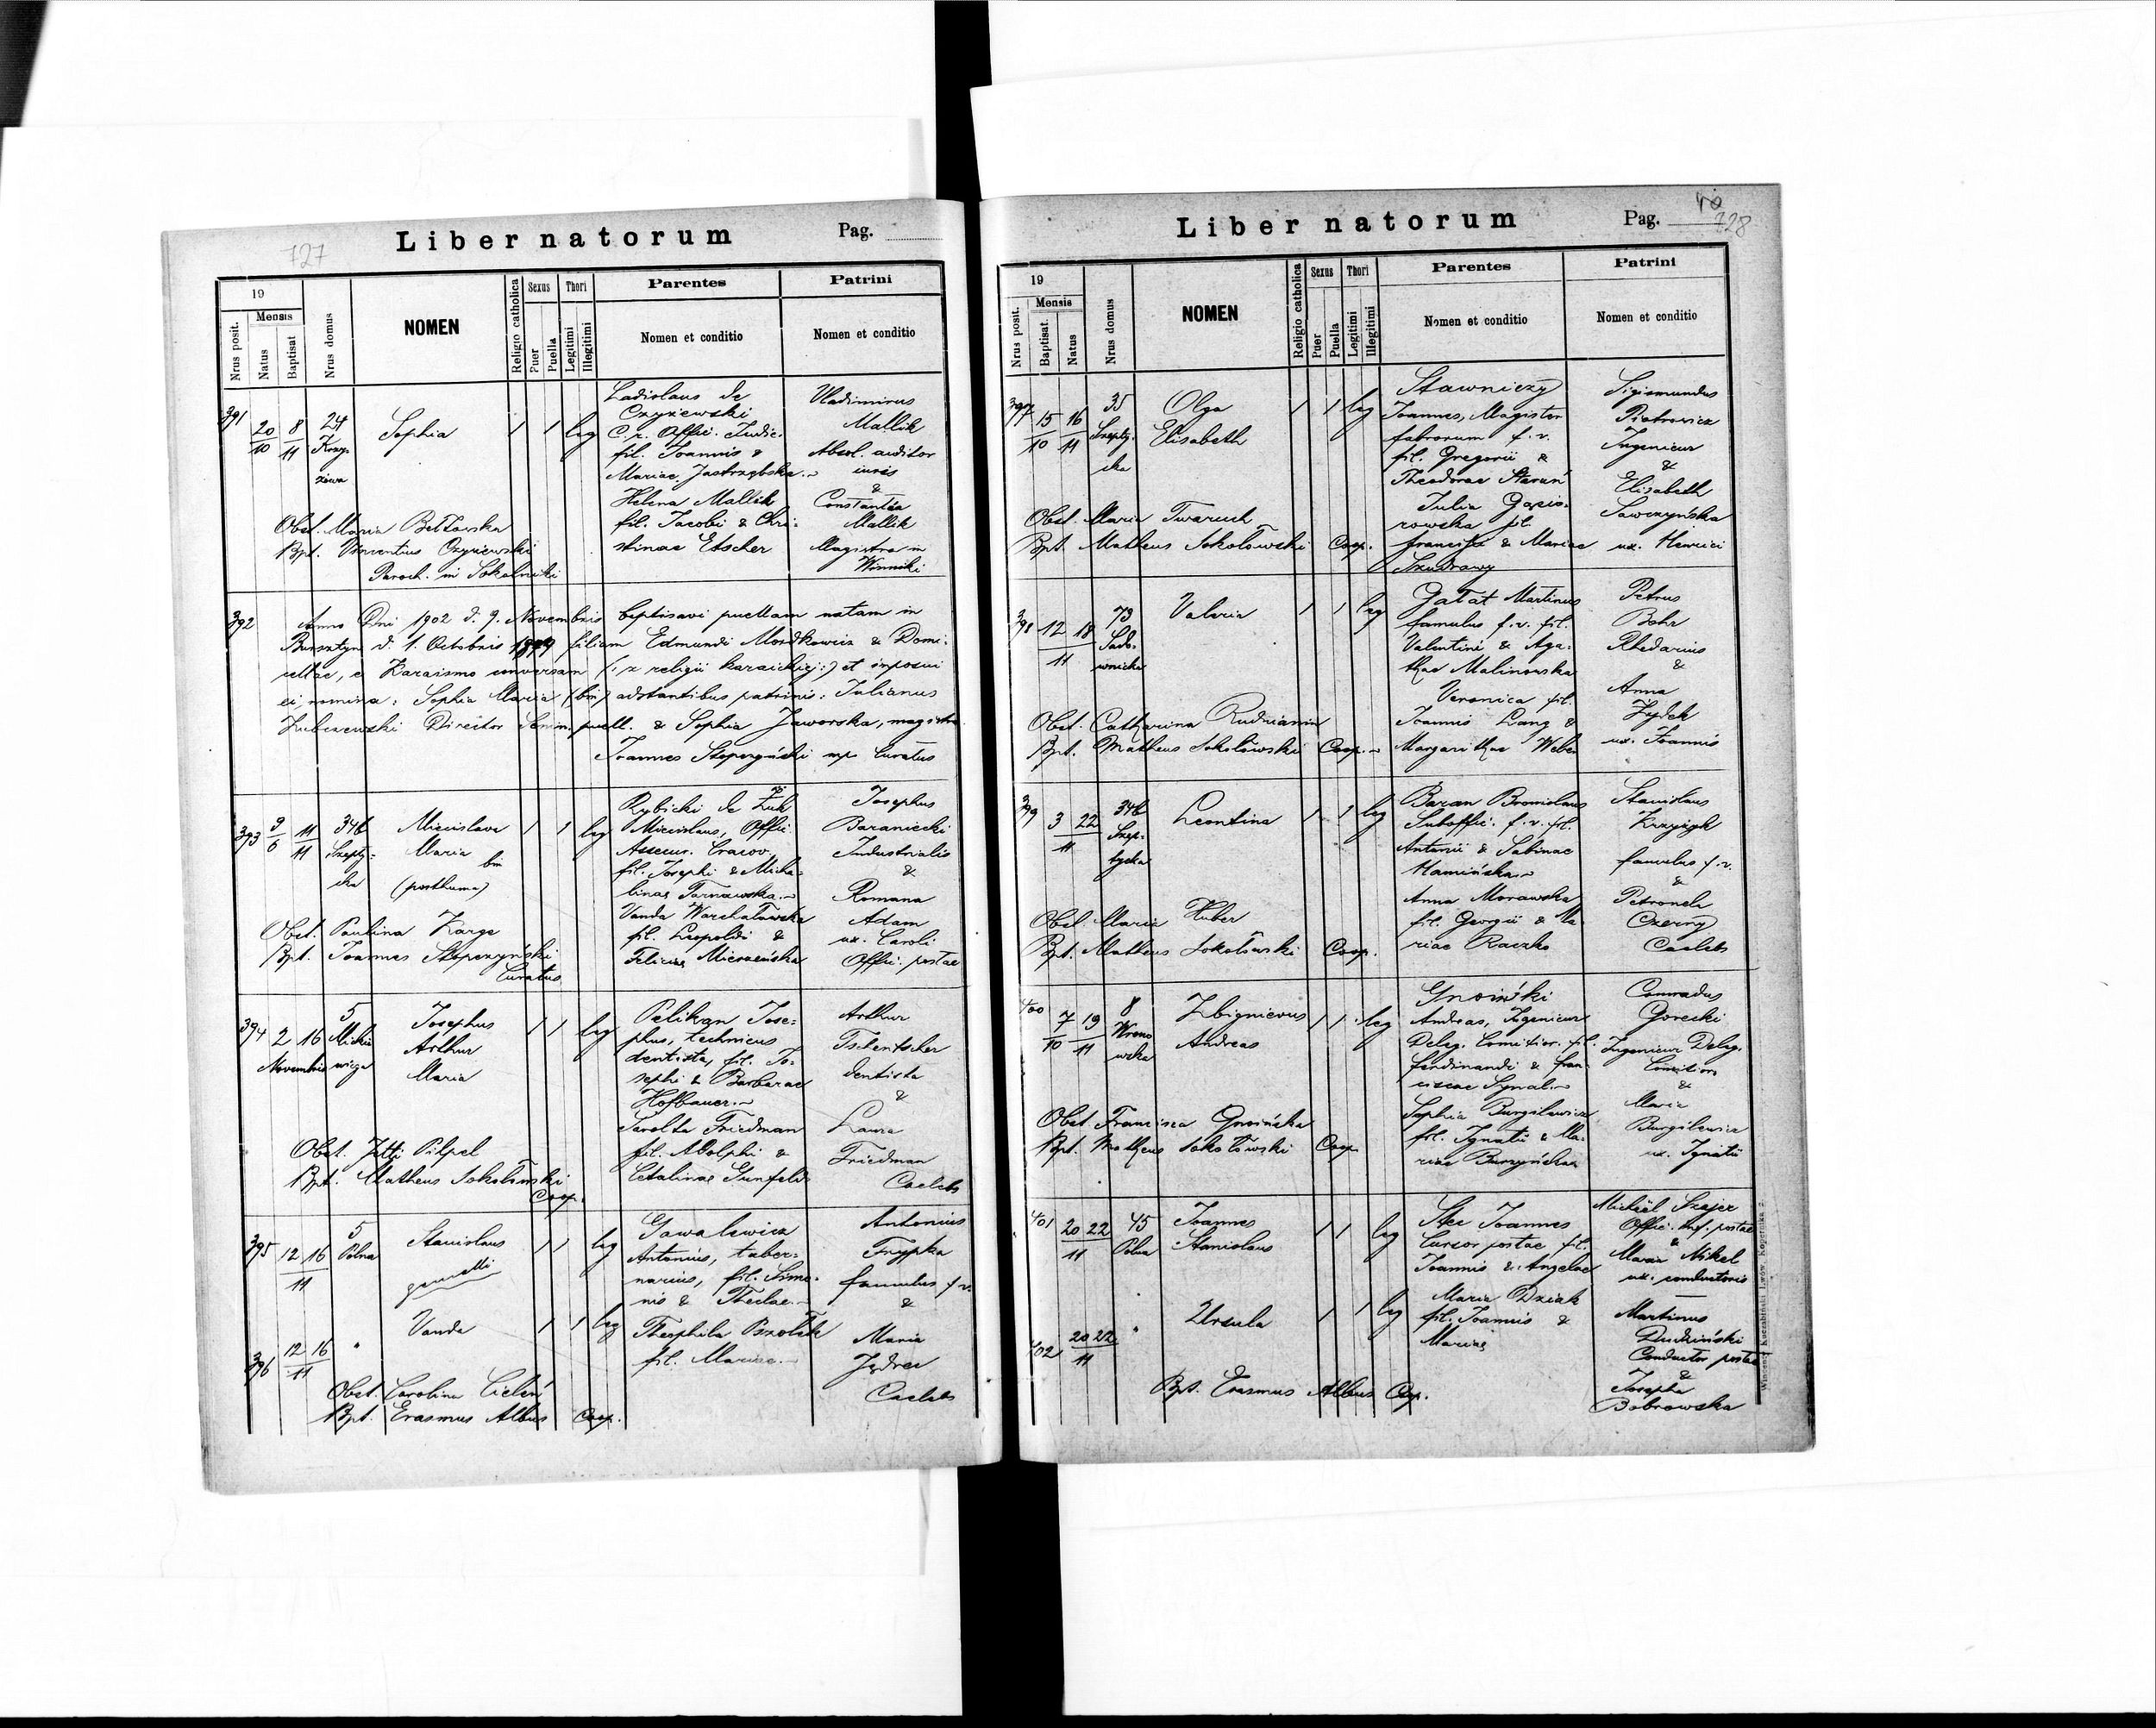 727
Liber natorum
Pag.
19
Mensis
Nrus posit.
Natus
Baptisat
Nrus domus
NOMEN
Religio catholica
Sexus
Puer
Puella
Thori
Legitimi
Illegitimi
Parentes
Nomen et conditio
Patrini
Nomen et conditio
391
20/10
8/11
24
Krzy-
żowa
Sophia
1 1 leg
Ladislaus de
Czyżewski
C. r. Offic. Judic.
fil. Joannis &
Mariae Jastrzębska
Helena Mallik
fil. Jacobi & Chri-
stinae Etscher
Vladimirus
Mallik
Absol. auditor
iuris
&
Constantia
Mallik
Magistra in
Winniki
Obst. Maria Bełtowska
Bpt. Vincentius Czyżewski
Paroch. in Sokolniki
392
Anno Dni 1902 d. 9. Novembris baptisavi puellam natam in
Bursztyn d. 1. Octobris 1879 filiam Edmundi Mordkowicz & Domi-
cellae, e Karaismo conversam (: z religii karaickiej :) et imposui
ei nomina: Sophia Maria (bin) adstantibus patrinis: Julianus
Zubczewski Director Semin. puell. & Sophia Jaworska, magistra
Joannes Stopczyński mp Curatus
393
9/6
11/11
34b
Szepty-
cka
Mieczslava
Maria bin
(posthuma)
1 1 leg
Rybicki de Żuk
Miecislaus, Offic.
Assecur. Cracov.
fil. Josephi & Micha-
linae Tarnawska
Vanda Warchałowska
fil. Leopoldi &
Feliciae
Josephus
Baraniecki
Industrialis
&
Romana
Adam
ux. Caroli
Offic. postae
Obst. Paulina Karge
Bpt. Joannes Stopczyński
Curatus
394
2 16
Novembris
5
Mickie
wicza
Josephus
Arthur
Maria
1 1 leg
Pelikan Jose-
phus, technicus
dentista, fil. Jo-
sephi & Barbarae
Hofbauer
Sarolta Friedman
fil. Adolphi &
Arthur
dentista
&
Laura
Friedman
Caelebs
Obst. Jetti Pilpel
Bpt. Matheus Sokołowski
Coop.
395
12 16
11
5
Polna
Stanislaus
gemelli
1 1 leg
Gawalewicz
Antonius, taber-
narius, fil. Simo-
nis & Theclae
Theophila
fil. Mariae
Antonius
Frypka
famulus f. r.
&
Maria
Jędrec
Caelebs
396
12 16
11
"
Vanda
1 1 leg
Obst. Carolina Cieleń
Bpt. Erasmus Albus Coop.
Liber natorum
Pag. 728
19
Mensis
Nrus posit.
Baptisat.
Natus
Nrus domus
NOMEN
Religio catholica
Sexus
Puer
Puella
Thori
Legitimi
Illegitimi
Parentes
Nomen et conditio
Patrini
Nomen et conditio
397
15/10
16/11
35
Szepty-
cka
Olga
Elisabeth
1 1 leg
Stawniczy
Joannes, Magister
fabrorum f. v.
fil. Gregorii &
Theodorae
Julia Gąsio-
rowska fil.
Francisci & Mariae
Szudrawy
Sigismundus
Piotrowicz
Ingenieur
&
Elisabeth
Sawczyńska
ux. Henrici
Obst. Maria Twaruch
Bpt. Matheus Sokołowski Coop.
398
12 18
11
73
Sado-
wnicka
Valeria
1 1 leg
Gałat Martinus
famulus f. v. fil.
Valentini & Aga-
thae Malinowska
Veronica fil.
Joannis Lang &
Margarithae Weber
Petrus
Bohr
Rhedarius
&
Anna
Zydek
ux. Joannis
Obst. Catharina Rudnianin
Bpt. Matheus Sokołowski Coop.
399
3 22
11
34b
Szep-
tycka
Leontina
1 1 leg
Baran Bronislaus
Suboffic. f. v. fil.
Antonii & Sabinae
Kamińska
Anna Morawska
fil. Georgii & Ma-
riae Raczko
Stanislaus
Krzyżyk
famulus f. v.
&
Petronela
Czerny
Caelebs
Obst. Maria Huber
Bpt. Matheus Sokołowski Coop.
400
7/10
19/11
8
Wrono
wska
Zbignievus
Andreas
1 1 leg
Gnoiński
Andreas, Ingenieur
Deleg. Comitior. fil.
Ferdinandi & Fran-
ciscae
Sophia Burgilewicz
fil. Ignatii & Ma-
riae Burzyńska
Conradus
Gorecki
Ingenieur Deleg.
Comitior.
&
Maria
Burgilewicz
ux. Ignatii
Obst. Francisca Gnoińska
Bpt. Matheus Sokołowski Coop.
401
20 22
11
45
Polna
Joannes
Stanislaus
1 1 leg
Stec Joannes
Cursor postae fil.
Joannis & Angelae
Maria Dziak
fil. Joannis &
Mariae
Michaël Szajer
Offic. postae
&
Maria Nikel
ux. conductoris
402
20 22
11
"
Ursula
1 1 leg
Martinus
Dudziński
Conductor postae
&
Josepha
Bobrowska
Bpt. Erasmus Albus Coop.